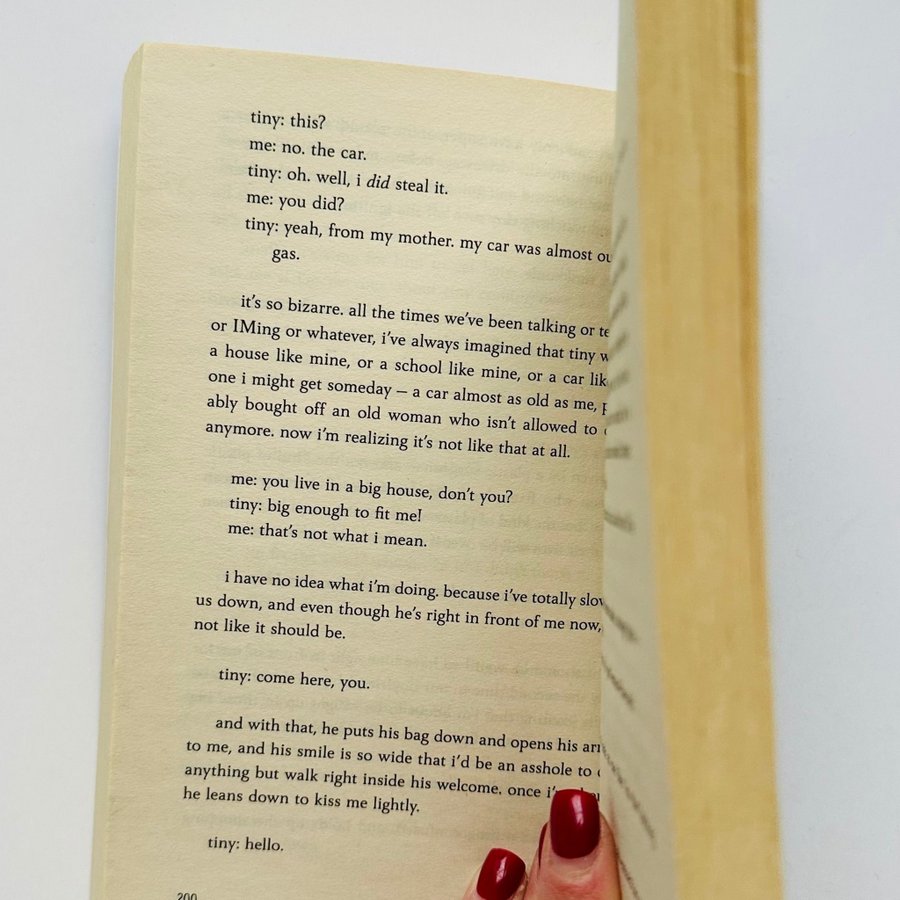 tiny: this?
me: no. the car.
tiny: oh. well, i did steal it.
me: you did?
tiny: yeah, from my mother. my car was almost
gas.
it's so bizarre. all the times we've been talking or
or IMing or whatever, i've always imagined that tiny
a house like mine, or a school like mine, or a car
one i might get someday – a car almost as old as me,
ably bought off an old woman who isn't allowed to
anymore. now i'm realizing it's not like that at all.
me: you live in a big house, don't you?
tiny: big enough to fit me!
me: that's not what i mean.
i have no idea what i'm doing. because i've totally
us down, and even though he's right in front of me now,
not like it should be.
tiny: come here, you.
and with that, he puts his bag down and opens his
to me, and his smile is so wide that i'd be an asshole to
anything but walk right inside his welcome. once
he leans down to kiss me lightly.
tiny: hello.
200